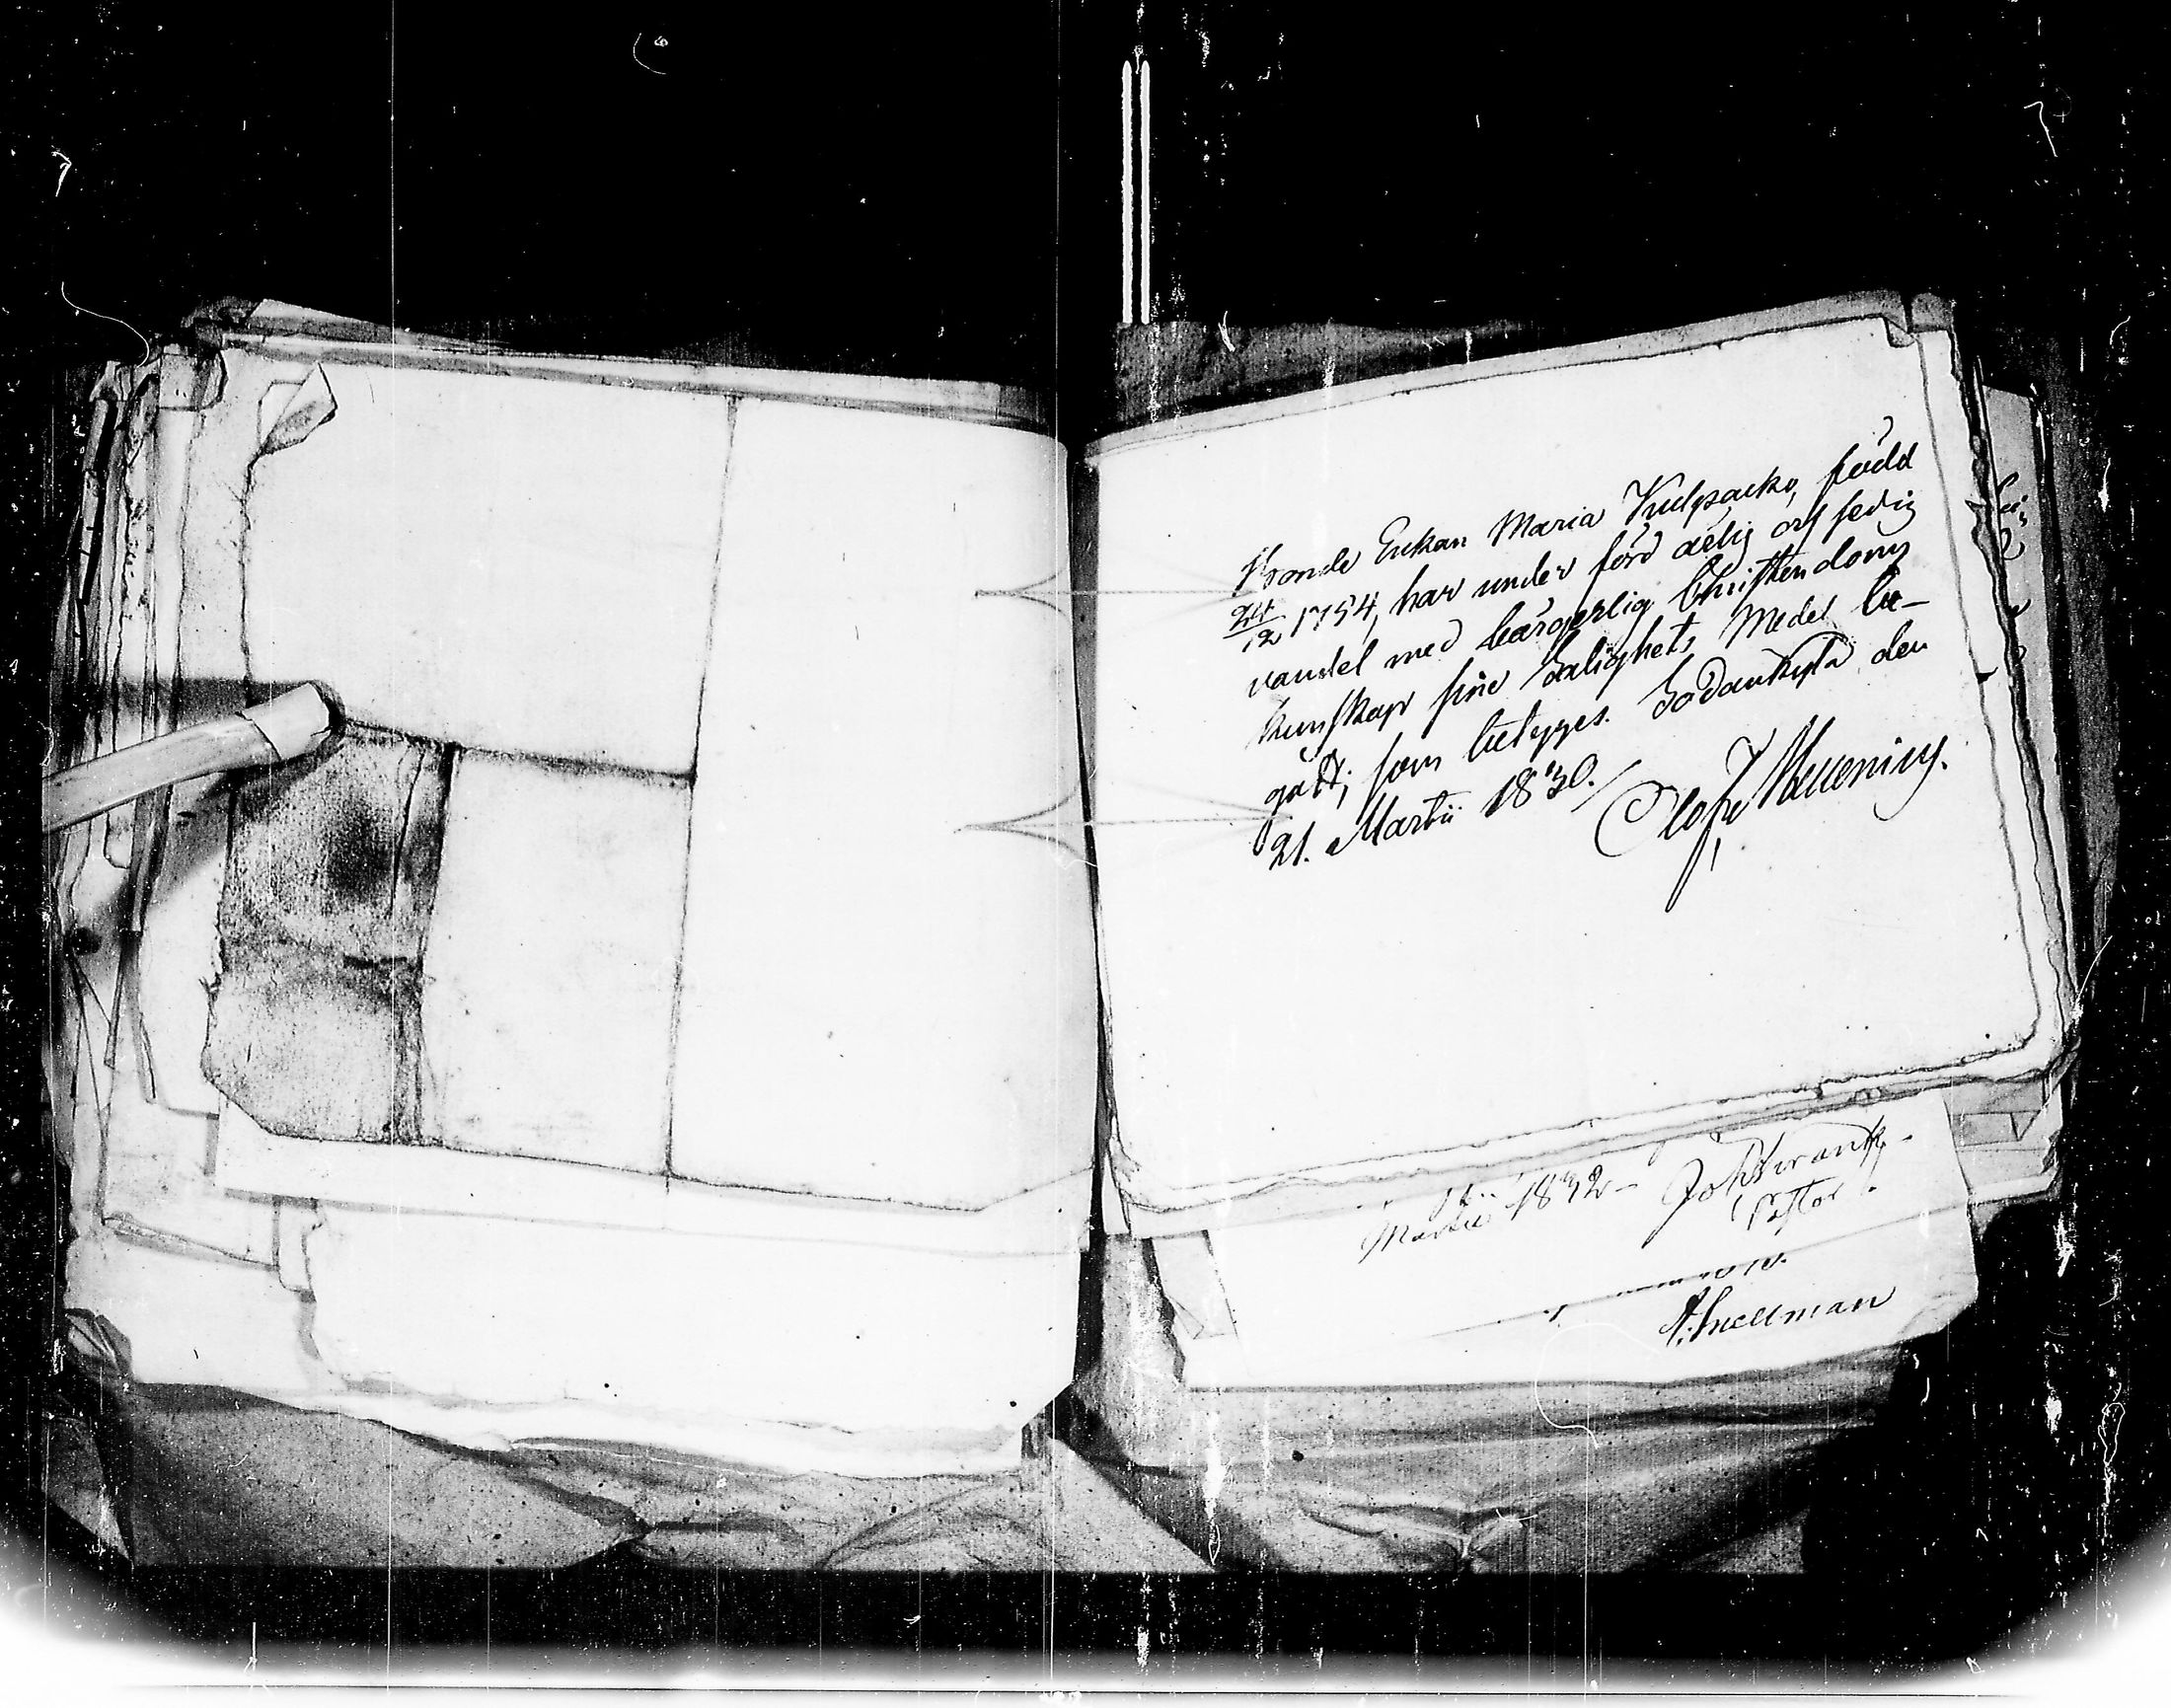 Bonde Enkan Maria Kulpacko, född
24/12 1754, har under förd ärlig och sedig
vandel med bärgerlig Christendoms
kunskap sine salighets Medel be-
gått; som betyges. Sodankylä den
21. Martii 1830.
Martii 1832 –
Pastor
A. Snellman